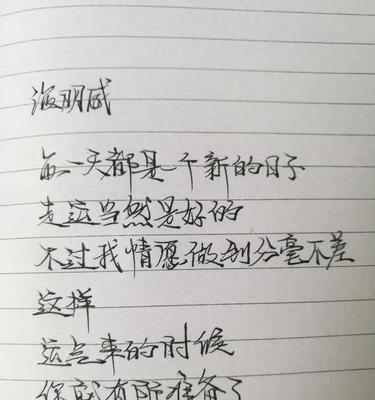 海明威
每一天都是一个新的日子
走运当然是好的
不过我情愿做到分毫不差
这样
运气来的时候
你就有所准备了